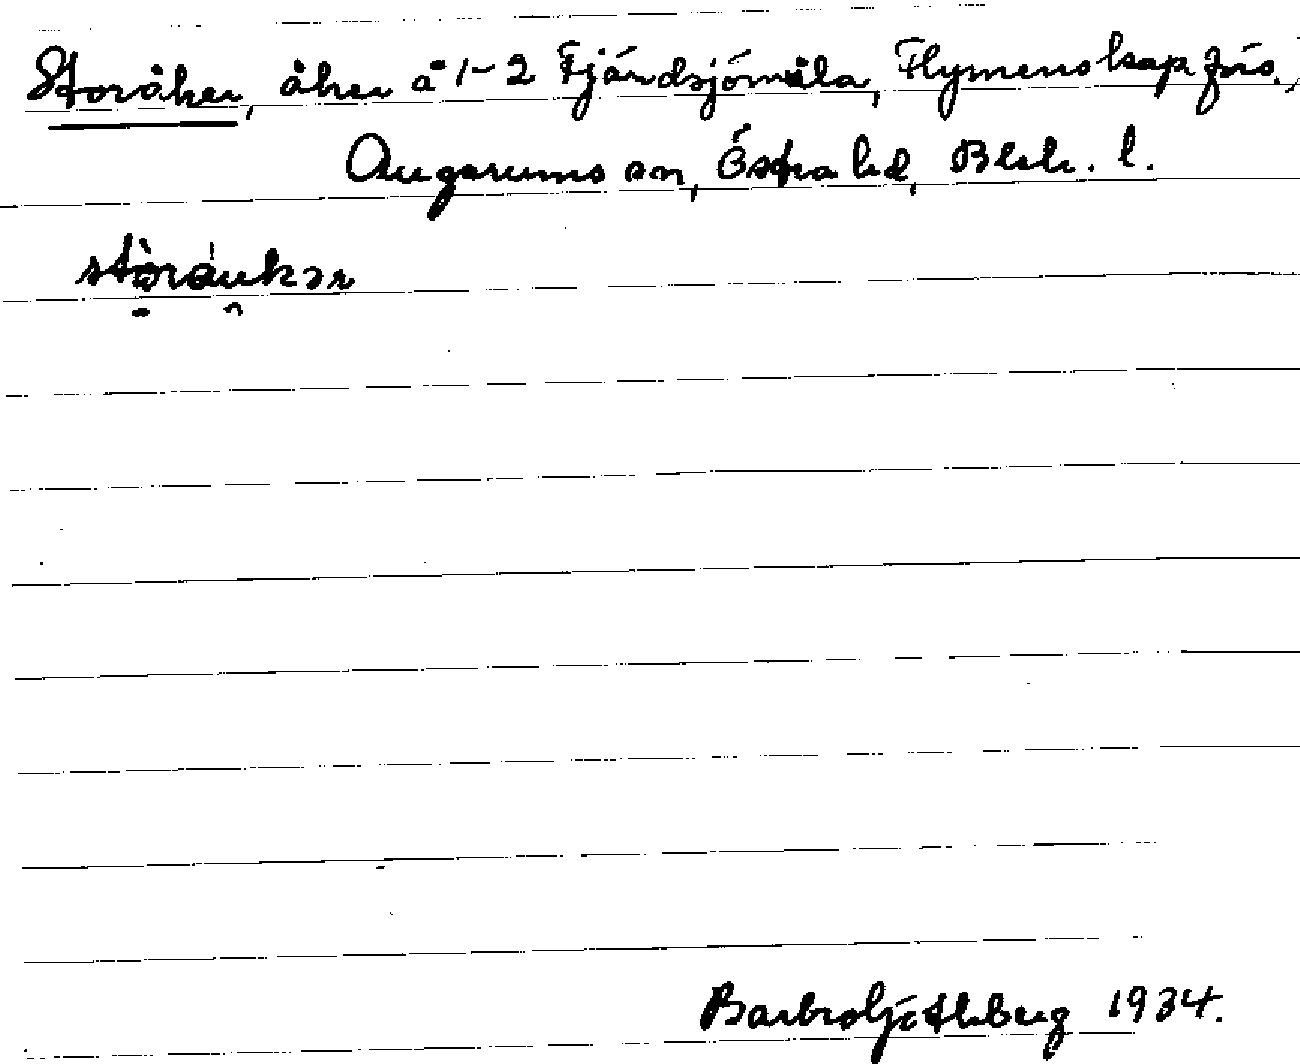 Storåker, åker å 1-2 Fjärdsjömåla, Flymens kap förs.,
Augerums sn, Östra hd, Blek. l.
Barbro Ljötlberg 1934.